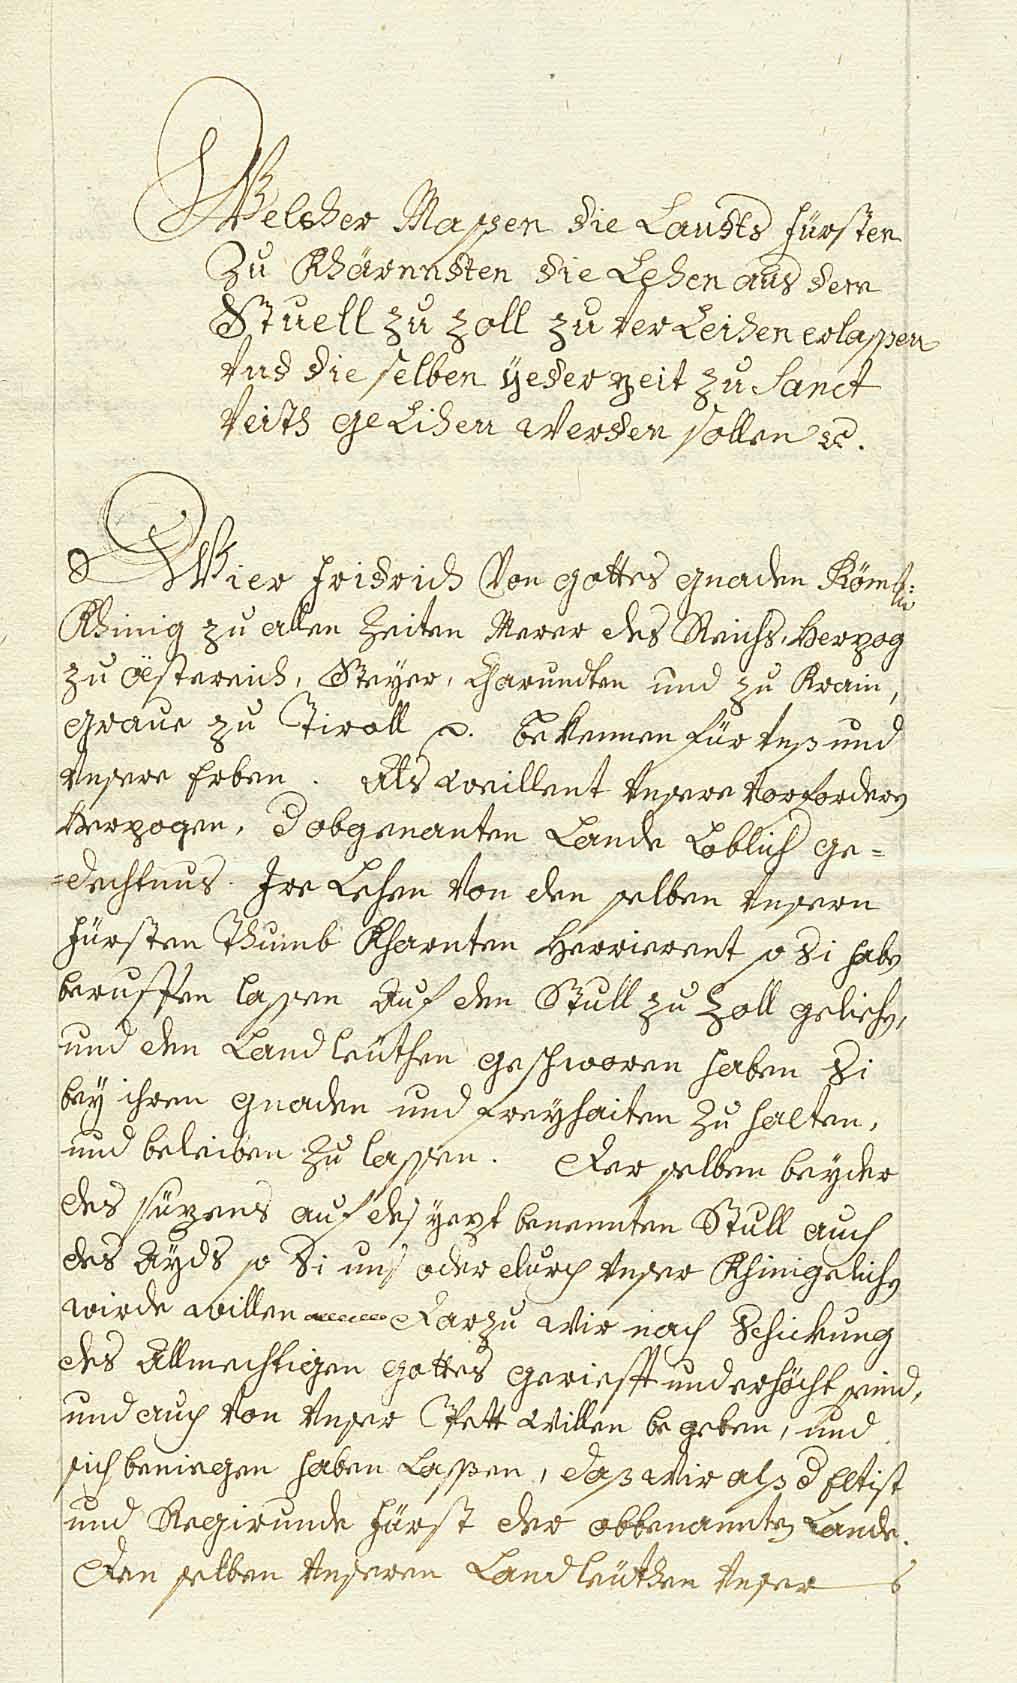 Welcher Massen die Landts Fürsten
Zu Khärnndten die Lehen aus dem
Stuell zu Zoll zu verLeihen erlassen
Vnd die selben yeder zeit zu Sanct
Veith geLihen werden sollen etc.
Wier Fridrich Von Gottes gnaden Röml:
Khinig zu allen Zeiten Merer des Reichs, Herzog
zu Össtereich, Steyer, Charundten und zu Krain,
Graue zu Tiroll etc. beKennen für Vnß und
Vnsere Erben. Als weillent Vnsere Vorfordern
Herzogen, d obgenanten Lande Loblich ge=
=dechtnus. Ire Lehen Von den selben Vnsern
Fürsten Thumb Kharnten Herrierent so Si haben
beruffen lassen Auf den Stull zu Zoll gelichen,
und den Landleüthen geschworen haben Si
bey ihren gnaden und Freyhaiten zu halten,
und beleiben zu lassen. Der selben beyder
des süzens auf des yezt benennten Stull auch
des Ayds so Si uns oder durch Vnser Khinigelichen
wirde willen Darzu Wir nach Schickung
des Allmechtigen Gottes geriefft und erhöcht sind,
und auch Von Vnser Pett willen begeben, und
sich beniegen haben Lassen, daß Wir alß d Eltist
und Regirunde Fürst der obbenannten Lande.
Den selben Vnseren Landleüthen Vnser